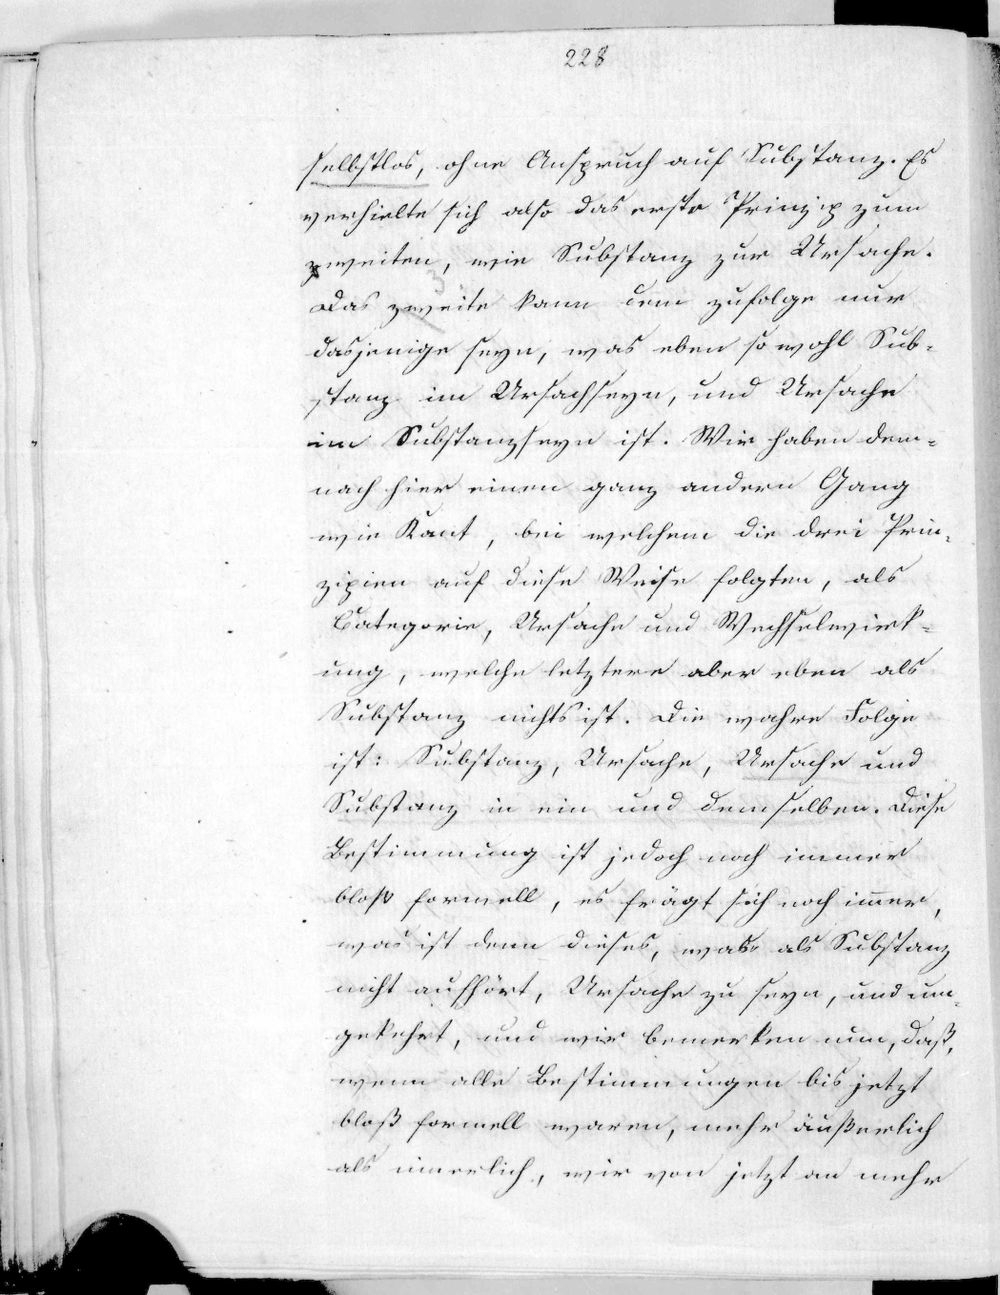 228
selbstlos, ohne Anspruch auf Substanz. Es
verhielte sich also das erste Prinzip zum
zweiten, wie Substanz zur Ursache.
3
Das zweite kann dem zufolge nur
dasjenige seyn, was eben sowohl Sub-
stanz im Ursachseyn, und Ursache
im Substanzseyn ist. Wir haben dem-
nach hier einen ganz andern Gang
wie Kant, bei welchem die drei Prin-
zipien auf diese Weise folgten, als
Categorie, Ursache und Wechselwirk-
ung, welche letztere aber eben als
Substanz nichts ist. Die wahre Folge
ist: Substanz, Ursache, Ursache und
Substanz in ein und demselben. Diese
Bestimmung ist jedoch noch immer
bloß formell, es frägt sich noch im̅er,
was ist denn dieses, was als Substanz
nicht aufhört, Ursache zu seyn, und um-
gekehrt, und wir bemerken nun, daß,
wenn alle Bestimmungen bis jetzt
bloß formell waren, mehr äußerlich
als innerlich, wir von jetzt an mehr